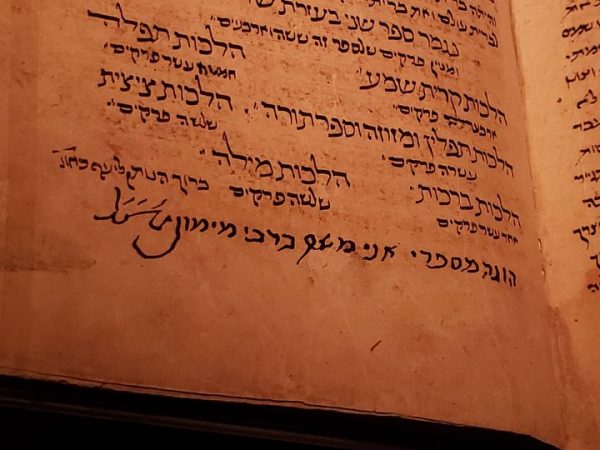 לברית עולם ואת
נגמר ספר שני בעזרת
ומנין פרקים שלספר זה ששה וארבעים
הלכות קרית שמע הלכות תפלה
ארבעה פרקים חמשה עשר פרקים
הלכות תפלין ומזוזה וספר תורה הלכות ציצית
עשרה פרקים שלשה פרקים
הלכות ברכות הלכות מילה
אחד עשר פרקים שלשה פרקים בריך הנותן ליעף כח
הוגה מספרי אני משה ברבי מימון זצ"ל